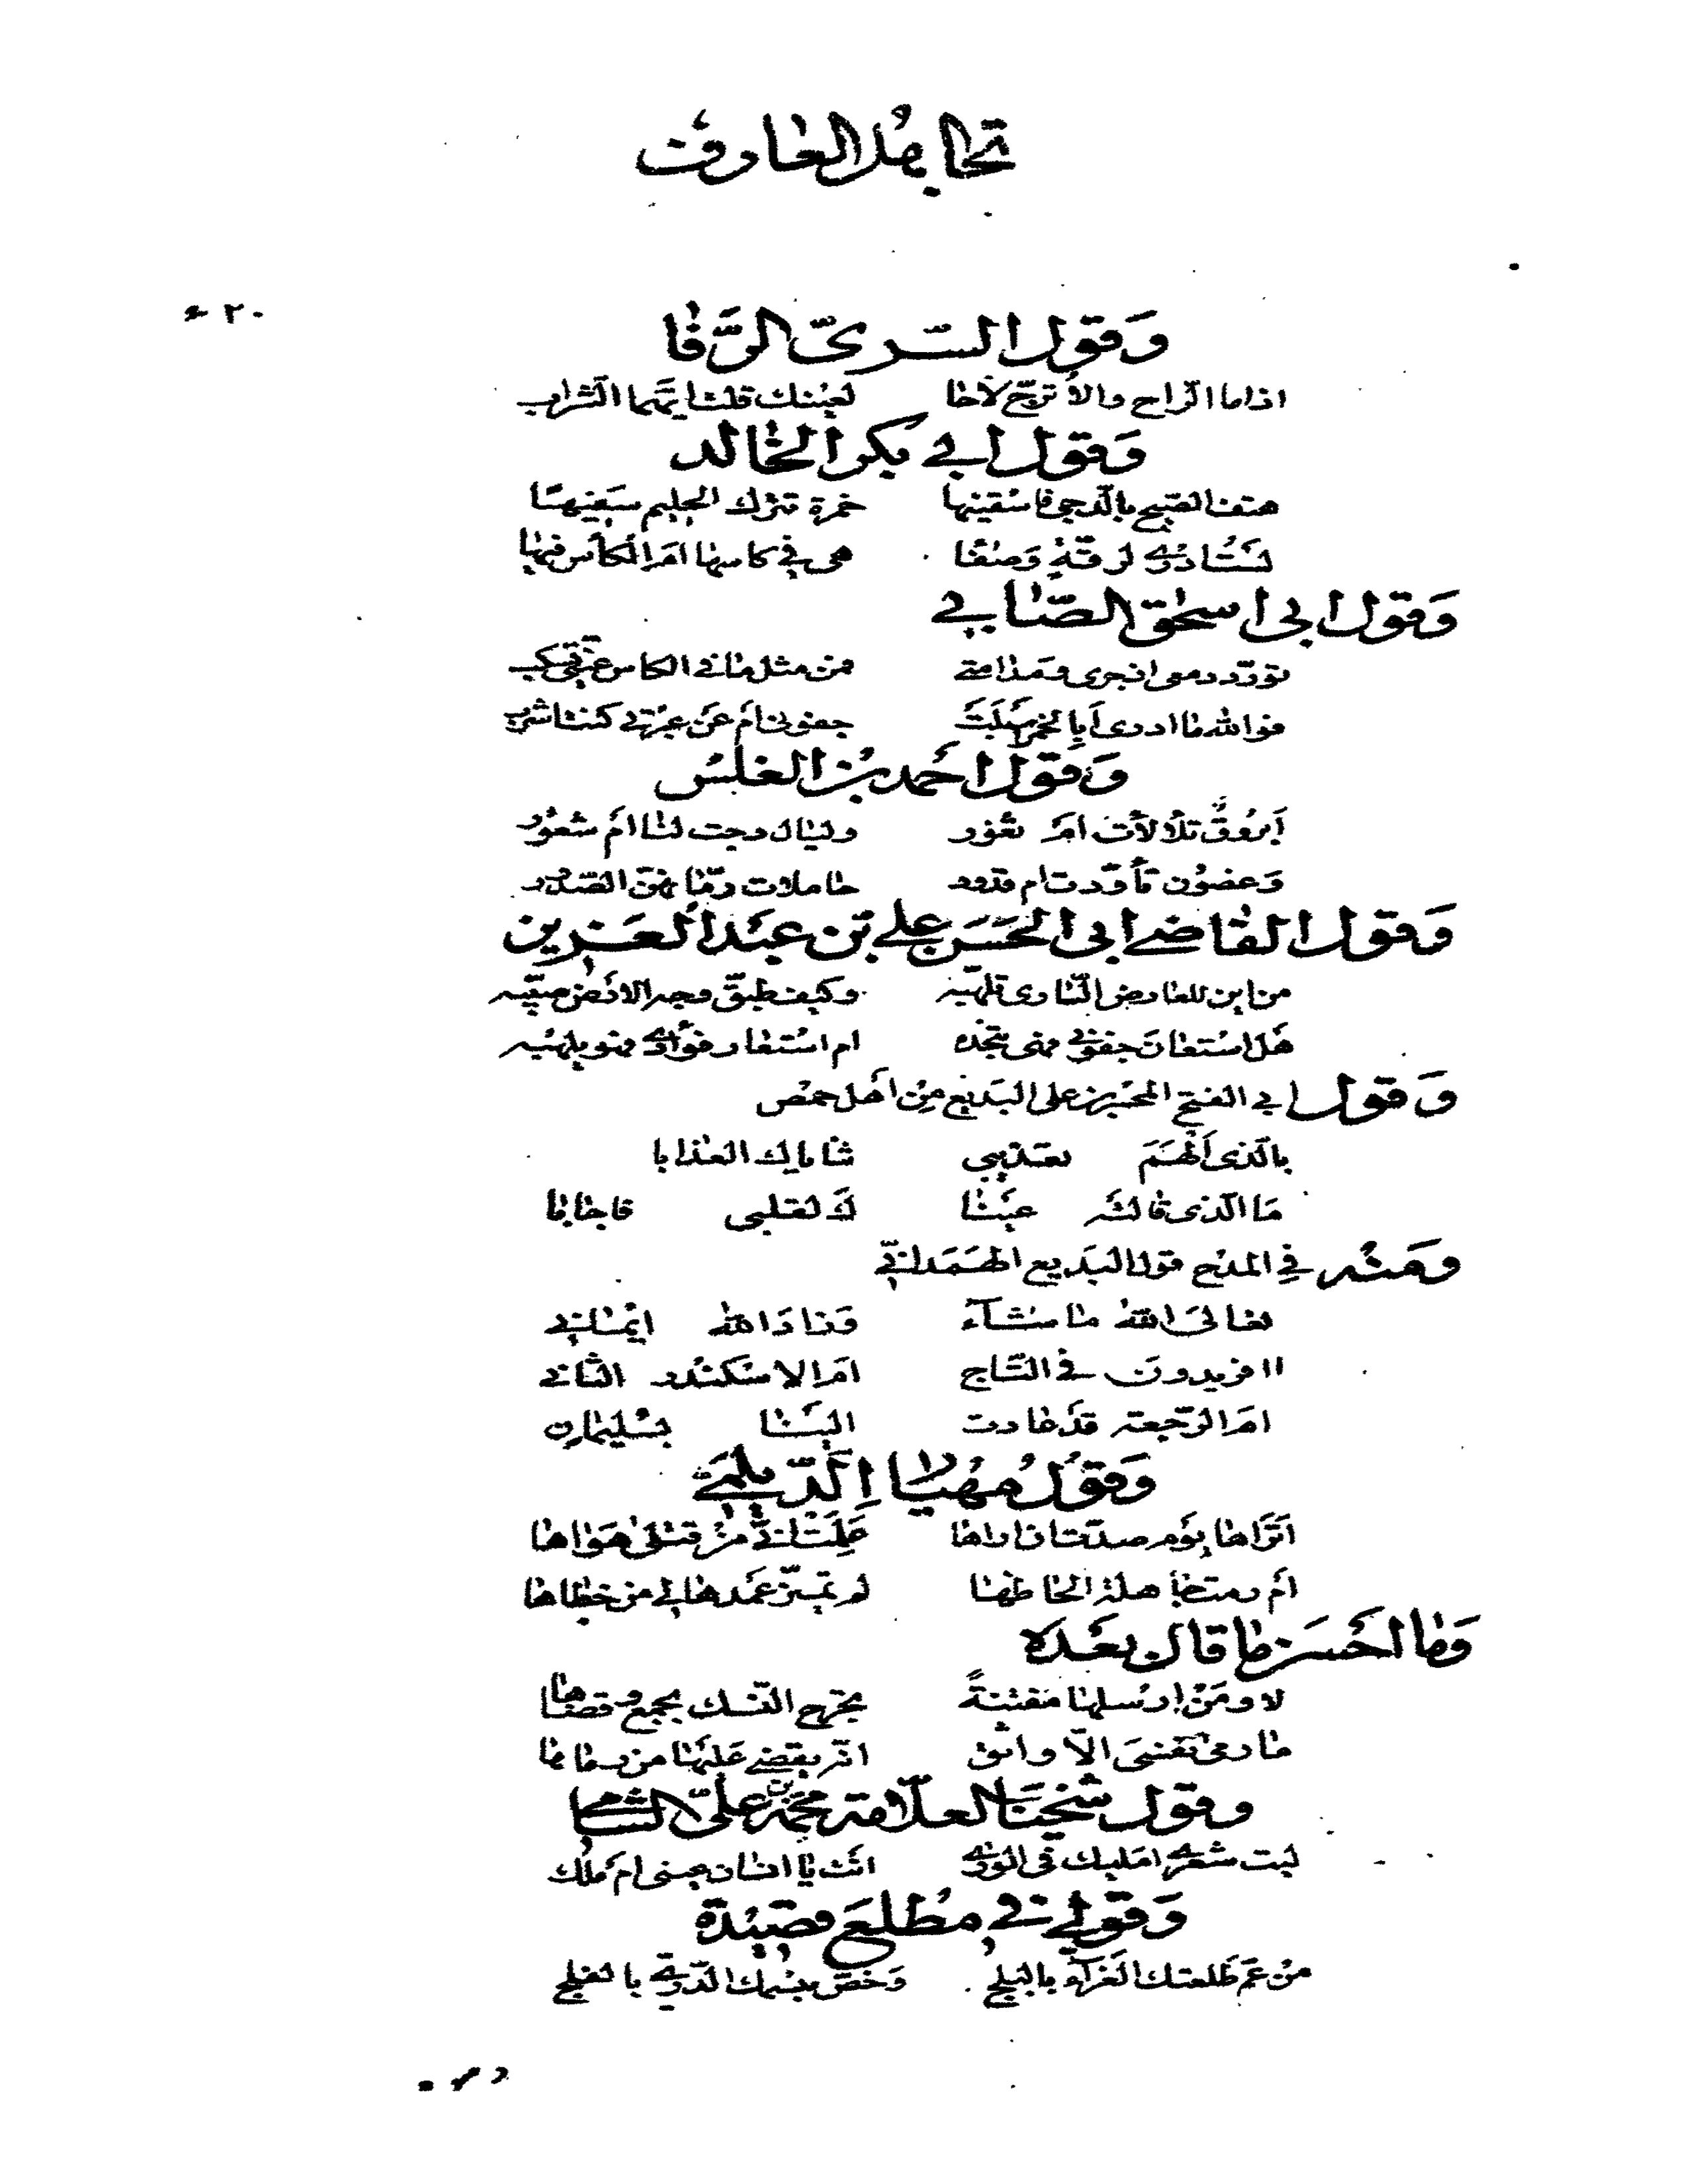 تجاهل العارف
٢٠٤
وَقول السّريّ الرّفا
اذا ما الراح والأترجّ لاحا لعينك قلت ايّهما الشراب
وَقول ابي بكر الخالد
هتف الصبح بالدجى فاسقنيها خمرة تترك الحليم سَفيهًا
لسْتُ ادرى لرقّةٍ وَصفًا هى في كاسها ام الكأس فيها
وَقول ابى اسحٰق الصّابي
تورّد دمعى اذ جرى ومدامتي فمن مثل ما في الكاس عيني تسكب
فوالله ما ادرى اَبِالخمر اسبلَتْ جفونى امْ عَن عبْرتي كنت اشرب
وَقول احمد بن المغلس
اَبرُوقٌ تلألأت امْ ثغور وليال دجت لنا امْ شعور
وَغصُون تأوّدت ام قدود حاملات رمّانهنّ الصّدور
وَقول القاضي ابى الحَسَن علي بن عبْد العَزيز
من اين للعارض السّارى تلهّبه وكيف طبّق وجه الارْض صيّبه
هَل اسْتعان جفوني فهى تنجده ام اسْتعار فؤادي فهو يلهبه
وَقول ابي الفتح المحْبرز على البَديع مِنْ اهْل حمْص
بالّذى اَلْهَمَ تعذيبي ثناياك العذابا
مَا الّذى قالتْه عيْنَا كَ لقلبى فاجابا
ومَنْه في المدْح قول البَديع الهَمَدانيّ
تعالىَ الله ما شآءَ وَزادَ الله ايْمانى
اافريدون في التّاج امَ الاسْكنْدر الثانى
امَ الرّجعة قدْ عادت اليْنَا بسُليمان
وَقوْل مهْيَار الدّيلميّ
اَتَراها يوْم صدّت ان اراها عَلِمَتْ انّي منْ قتلى هَواها
امْ رمت جاهلة الحاظها لم تميّز عمْدها لي من خطاها
وَما احْسَن ما قال بعْده
لا ومَنْ ارْسلها مفتنةً تخرج النّسك بجمع وقضاها
ما رمى نفسىَ الّا واثق انّه يقضي عَليْها من رماها
وقول شيْخنا العلّامة محمّد بن علىّ الشامي
ليت شعري امليك في الورى انْت يا انسان عينى امْ مَلَك
وَقولي في مطْلعَ قصيْدة
منْ عمّ طَلعتك الغرآء بالبلج وَخصّ مبْسمك الدّرّيّ بالفلج